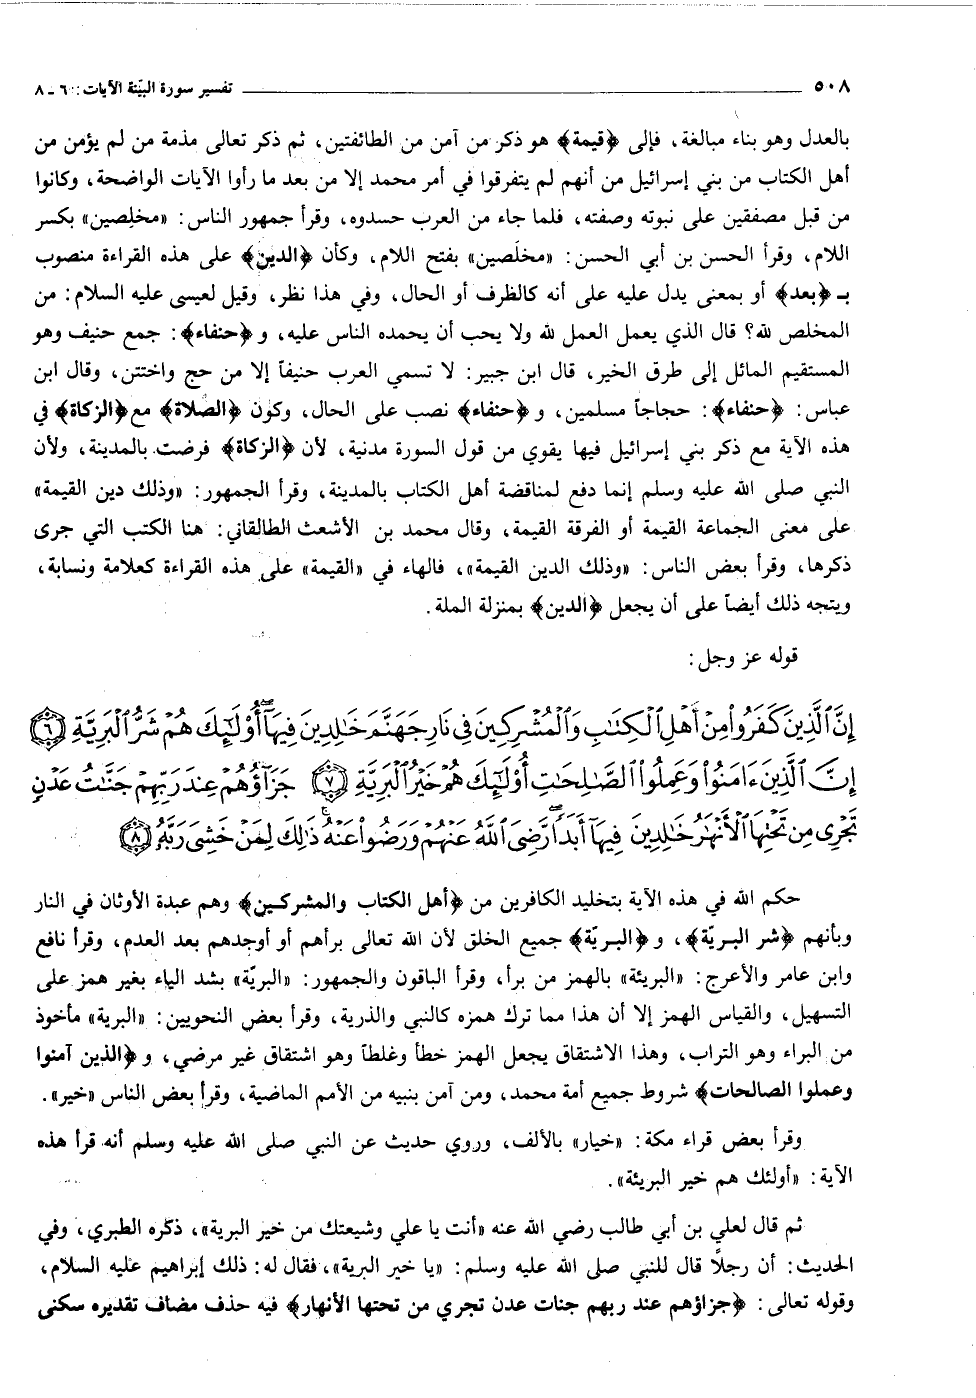 ٥٠٨ تفسير سورة البيّنة الآيات: ٦ ـ ٨
بالعدل وهو بناء مبالغة، فإلى ﴿قيمة﴾ هو ذكر من آمن من الطائفتين، ثم ذكر تعالى مذمة من لم يؤمن من
أهل الكتاب من بني إسرائيل من أنهم لم يتفرقوا في أمر محمد إلا من بعد ما رأوا الآيات الواضحة، وكانوا
من قبل مصفقين على نبوته وصفته، فلما جاء من العرب حسدوه، وقرأ جمهور الناس: «مخلِصين» بكسر
اللام، وقرأ الحسن بن أبي الحسن: «مخلَصين» بفتح اللام، وكأن ﴿الدين﴾ على هذه القراءة منصوب
بـ ﴿بعد﴾ أو بمعنى يدل عليه على أنه كالظرف أو الحال، وفي هذا نظر، وقيل لعيسى عليه السلام: من
المخلص لله؟ قال الذي يعمل العمل لله ولا يحب أن يحمده الناس عليه، و ﴿حنفاء﴾: جمع حنيف وهو
المستقيم المائل إلى طرق الخير، قال ابن جبير: لا تسمي العرب حنيفاً إلا من حج واختتن، وقال ابن
عباس: ﴿حنفاء﴾: حجاجاً مسلمين، و ﴿حنفاء﴾ نصب على الحال، وكون ﴿الصّلاة﴾ مع ﴿الزكاة﴾ في
هذه الآية مع ذكر بني إسرائيل فيها يقوي من قول السورة مدنية، لأن ﴿الزكاة﴾ فرضت بالمدينة، ولأن
النبي صلى الله عليه وسلم إنما دفع لمناقضة أهل الكتاب بالمدينة، وقرأ الجمهور: «وذلك دين القيمة»
على معنى الجماعة القيمة أو الفرقة القيمة، وقال محمد بن الأشعث الطالقاني: هنا الكتب التي جرى
ذكرها، وقرأ بعض الناس: «وذلك الدين القيمة»، فالهاء في «القيمة» على هذه القراءة كعلامة ونسابة،
ويتجه ذلك أيضاً على أن يجعل ﴿الدين﴾ بمنزلة الملة.
قوله عز وجل:
إِنَّ ٱلَّذِينَ كَفَرُوا۟ مِنْ أَهْلِ ٱلْكِتَـٰبِ وَٱلْمُشْرِكِينَ فِى نَارِ جَهَنَّمَ خَـٰلِدِينَ فِيهَآ أُو۟لَـٰٓئِكَ هُمْ شَرُّ ٱلْبَرِيَّةِ ﴿٦﴾
إِنَّ ٱلَّذِينَ ءَامَنُوا۟ وَعَمِلُوا۟ ٱلصَّـٰلِحَـٰتِ أُو۟لَـٰٓئِكَ هُمْ خَيْرُ ٱلْبَرِيَّةِ ﴿٧﴾ جَزَآؤُهُمْ عِندَ رَبِّهِمْ جَنَّـٰتُ عَدْنٍ
تَجْرِى مِن تَحْتِهَا ٱلْأَنْهَـٰرُ خَـٰلِدِينَ فِيهَآ أَبَدًا رَّضِىَ ٱللَّهُ عَنْهُمْ وَرَضُوا۟ عَنْهُ ذَٰلِكَ لِمَنْ خَشِىَ رَبَّهُۥ ﴿٨﴾
حكم الله في هذه الآية بتخليد الكافرين من ﴿أهل الكتاب والمشركـين﴾ وهم عبدة الأوثان في النار
وبأنهم ﴿شر البـريّة﴾، و ﴿البـريّة﴾ جميع الخلق لأن الله تعالى برأهم أو أوجدهم بعد العدم، وقرأ نافع
وابن عامر والأعرج: «البريئة» بالهمز من برأ، وقرأ الباقون والجمهور: «البريّة» بشد الياء بغير همز على
التسهيل، والقياس الهمز إلا أن هذا مما ترك همزه كالنبي والذرية، وقرأ بعض النحويين: «البرية» مأخوذ
من البراء وهو التراب، وهذا الاشتقاق يجعل الهمز خطأ وغلطاً وهو اشتقاق غير مرضي، و ﴿الذين آمنوا
وعملوا الصالحات﴾ شروط جميع أمة محمد، ومن آمن بنبيه من الأمم الماضية، وقرأ بعض الناس «خير».
وقرأ بعض قراء مكة: «خيار» بالألف، وروي حديث عن النبي صلى الله عليه وسلم أنه قرأ هذه
الآية: «أولئك هم خير البريئة».
ثم قال لعلي بن أبي طالب رضي الله عنه «أنت يا علي وشيعتك من خير البرية»، ذكره الطبري، وفي
الحديث: أن رجلًا قال للنبي صلى الله عليه وسلم: «يا خير البرية»، فقال له: ذلك إبراهيم عليه السلام،
وقوله تعالى: ﴿جزاؤهم عند ربهم جنات عدن تجري من تحتها الأنهار﴾ فيه حذف مضاف تقديره سكنى